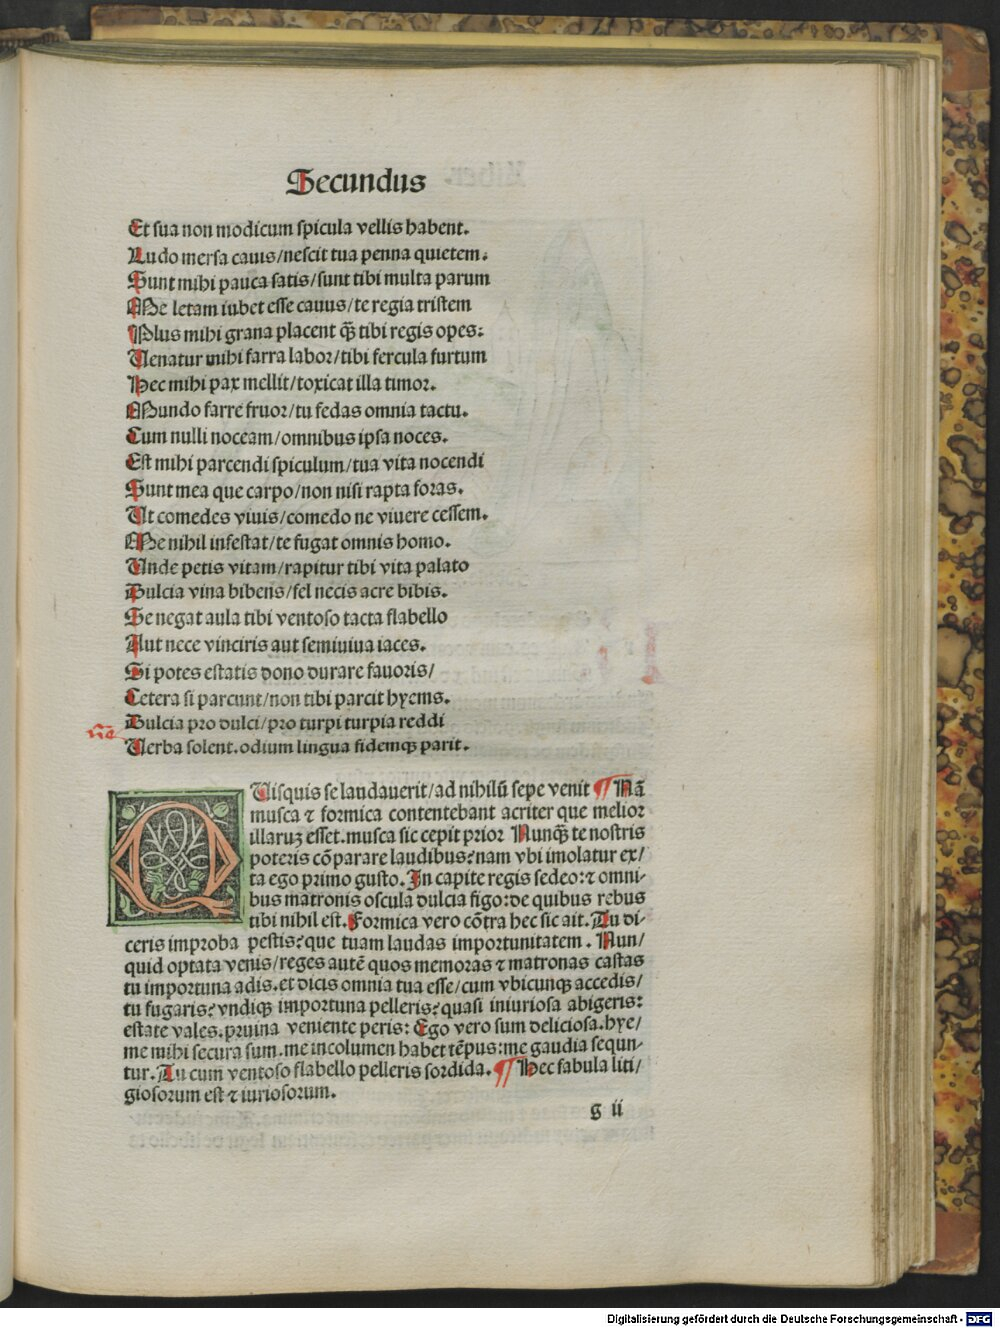 Secundus
Et sua non modicum spicula vellis habent.
Ludo mersa cauis/nescit tua penna quietem.
Sunt mihi pauca satis/sunt tibi multa parum
Me letam iubet esse cauus/te regia tristem
Plus mihi grana placent q̃ tibi regis opes:
Uenatur mihi farra labor/tibi fercula furtum
Hec mihi pax mellit/toxicat illa timor.
Mundo farre fruor/tu fedas omnia tactu.
Cum nulli noceam/omnibus ipsa noces.
Est mihi parcendi spiculum/tua vita nocendi
Sunt mea que carpo/non nisi rapta foras.
Ut comedes viuis/comedo ne viuere cessem.
Me nihil infestat/te fugat omnis homo.
Unde petis vitam/rapitur tibi vita palato
Dulcia vina bibens/fel necis acre bibis.
Se negat aula tibi ventoso tacta flabello
Aut nece vinciris aut semiuiua iaces.
Si potes estatis dono durare fauoris/
Cetera si parcunt/non tibi parcit hyems.
Dulcia pro dulci/pro turpi turpia reddi
Uerba solent.odium lingua fidemqꝫ parit.
QUisquis se laudauerit/ad nihilū sepe venit ¶ Nā
musca ⁊ formica contentebant acriter que melior
illaruꝫ esset.musca sic cepit prior Nunq̃ te nostris
poteris cōparare laudibus?nam vbi imolatur ex/
ta ego primo gusto.In capite regis sedeo:⁊ omni/
bus matronis oscula dulcia figo:de quibus rebus
tibi nihil est.Formica vero cōtra hec sic ait.Tu di/
ceris improba pestis?que tuam laudas importunitatem. Nun/
quid optata venis/reges autē quos memoras ⁊ matronas castas
tu importuna adis.et dicis omnia tua esse/cum vbicunqꝫ accedis/
tu fugaris?vndiqꝫ importuna pelleris?quasi iniuriosa abigeris:
estate vales.pruina veniente peris: Ego vero sum deliciosa.hye/
me mihi secura sum.me incolumen habet tēpus:me gaudia sequn/
tur.Tu cum ventoso flabello pelleris sordida. ¶ Hec fabula liti/
giosorum est ⁊ iuriosorum.
g ii
Digitalisierung gefördert durch die Deutsche Forschungsgemeinschaft - DFG